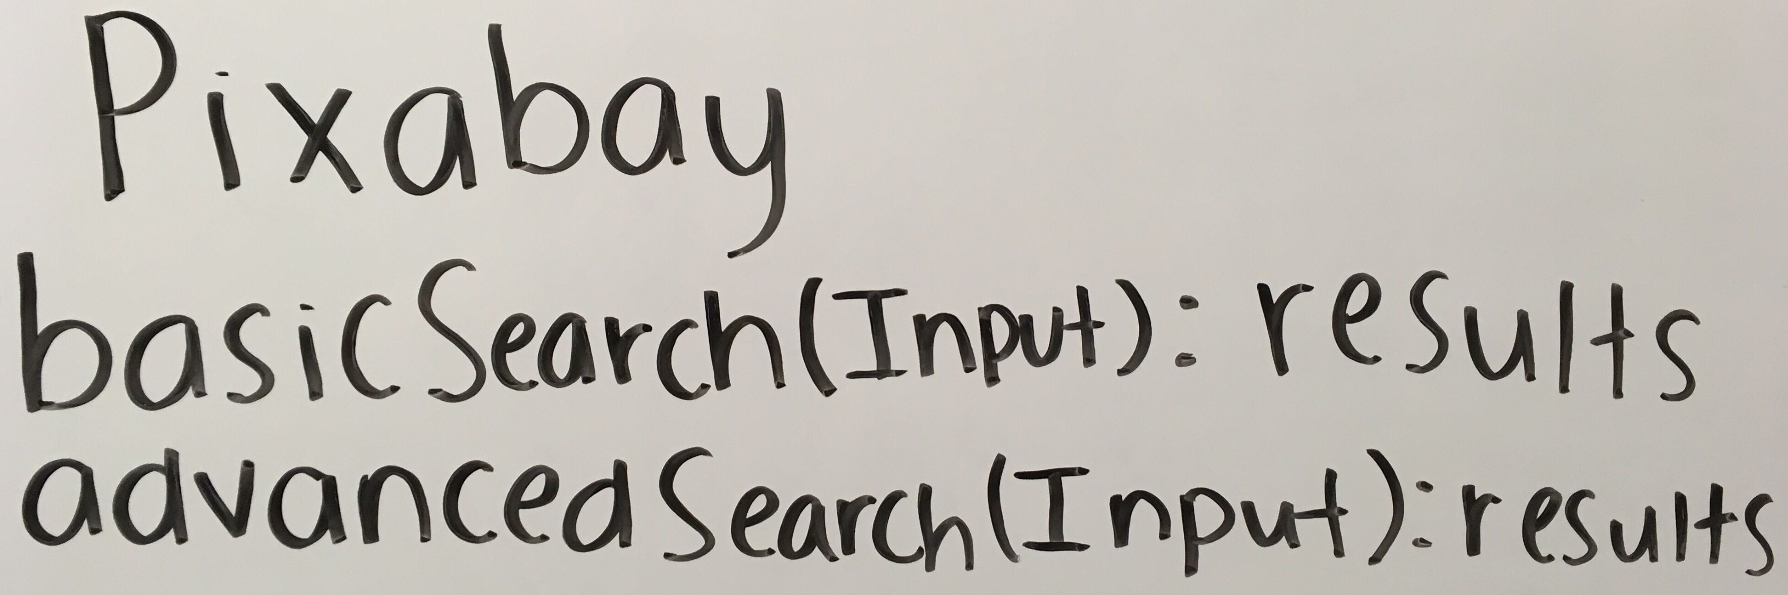 Pixabay
basicSearch(Input): results
advancedSearch(Input): results